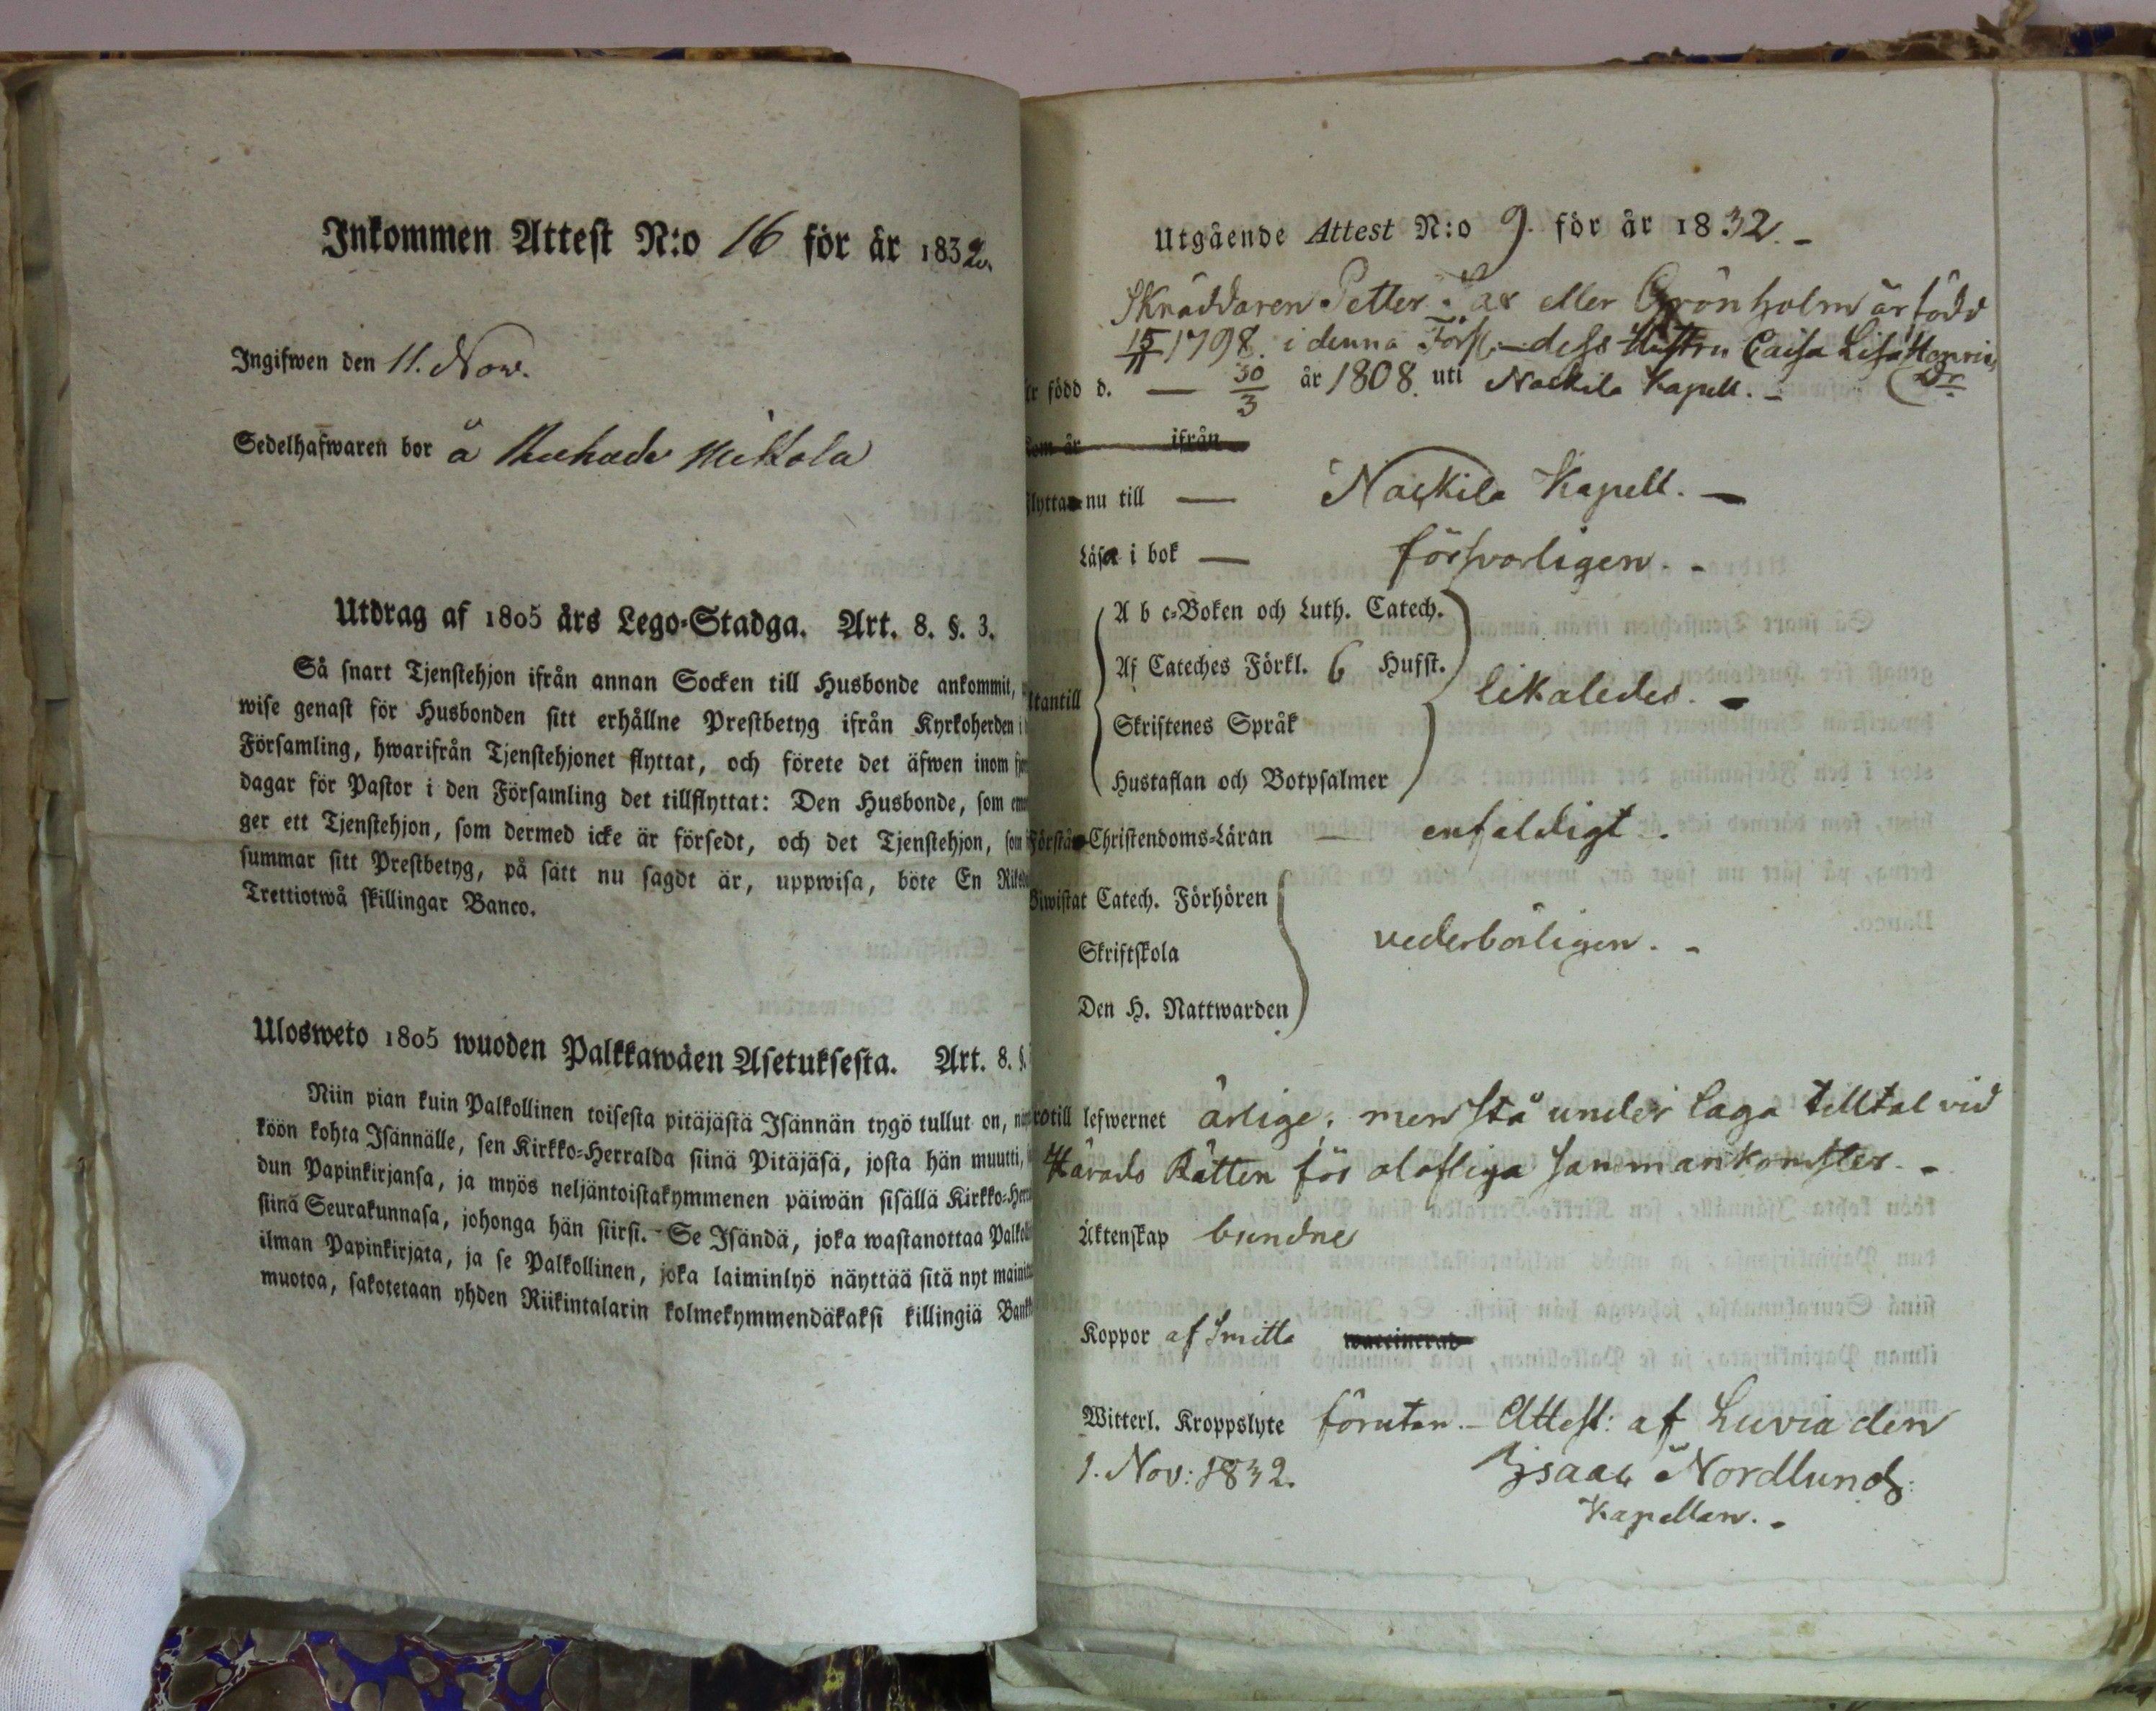 Inkommen Attest N:o 16 för år 1832.
Ingifwen den 11. Nov.
Sedelhafwaren bor å
Utdrag af 1805 års Lego-Stadga. Art. 8. §. 3.
Så snart Tjenstehjon ifrån annan Socken till Husbonde ankommit,
wise genast för Husbonden sitt erhållne Prestbetyg ifrån Kyrkoherden i
Församling, hwarifrån Tjenstehjonet flyttat, och förete det äfwen inom
dagar för Pastor i den Församling det tillflyttat: Den Husbonde, som
ger ett Tjenstehjon, som dermed icke är försedt, och det Tjenstehjon, som
summar sitt Prestbetyg, på sätt nu sagdt är, uppwisa, böte En
Trettiotwå skillingar Banco.
Ulosweto 1805 wuoden Palkkawäen Asetuksesta. Art. 8. §.
Niin pian kuin Palkollinen toisesta pitäjästä Isännän tygö tullut on,
köön kohta Isännälle, sen Kirkko-Herralda siinä Pitäjäsä, josta hän muutti,
dun Papinkirjansa, ja myös neljäntoistakymmenen päiwän sisällä
siinä Seurakunnasa, johonga hän siirsi. - Se Isändä, joka wastanottaa
ilman Papinkirjata, ja se Palkollinen, joka laiminlyö näyttää sitä nyt
muotoa, sakotetaan yhden Riikintalarin kolmekymmendäkaksi killingiä
Utgående Attest N:o 9. för år 1832. -
Skräddaren Petter eller Grönholm är född
15/11 1798. i denna Förs. - dess Hustru Caisa Lisa Henrics
Dr
är född d. — 30/3 år 1808. uti Nackila Kapell. -
som är ifrån
flytta nu till — Nackila Kapell. -
Läsa i bok — försvarligen. -
A b c-Boken och Luth. Catech.
Af Cateches Förkl. 6 Hufst.
Utantill likaledes. -
Skriftenes Språk
Hustaflan och Botpsalmer
Förstå Christendoms-Läran — enfaldigt.
Biwistat Catech. Förhören
Skriftskola vederbörligen. -
Den H. Nattwarden
till lefwernet ärlige, men stå under laga tilltal vid
Härads Rätten för olofliga sammankomster. -
Äktenskap bundne
Koppor af Smitta waccinerad
Witterl. Kroppslyte förutan. - Attest: af Luvia den
1. Nov: 1832. Isaac Nordlund.
Kapellan. -